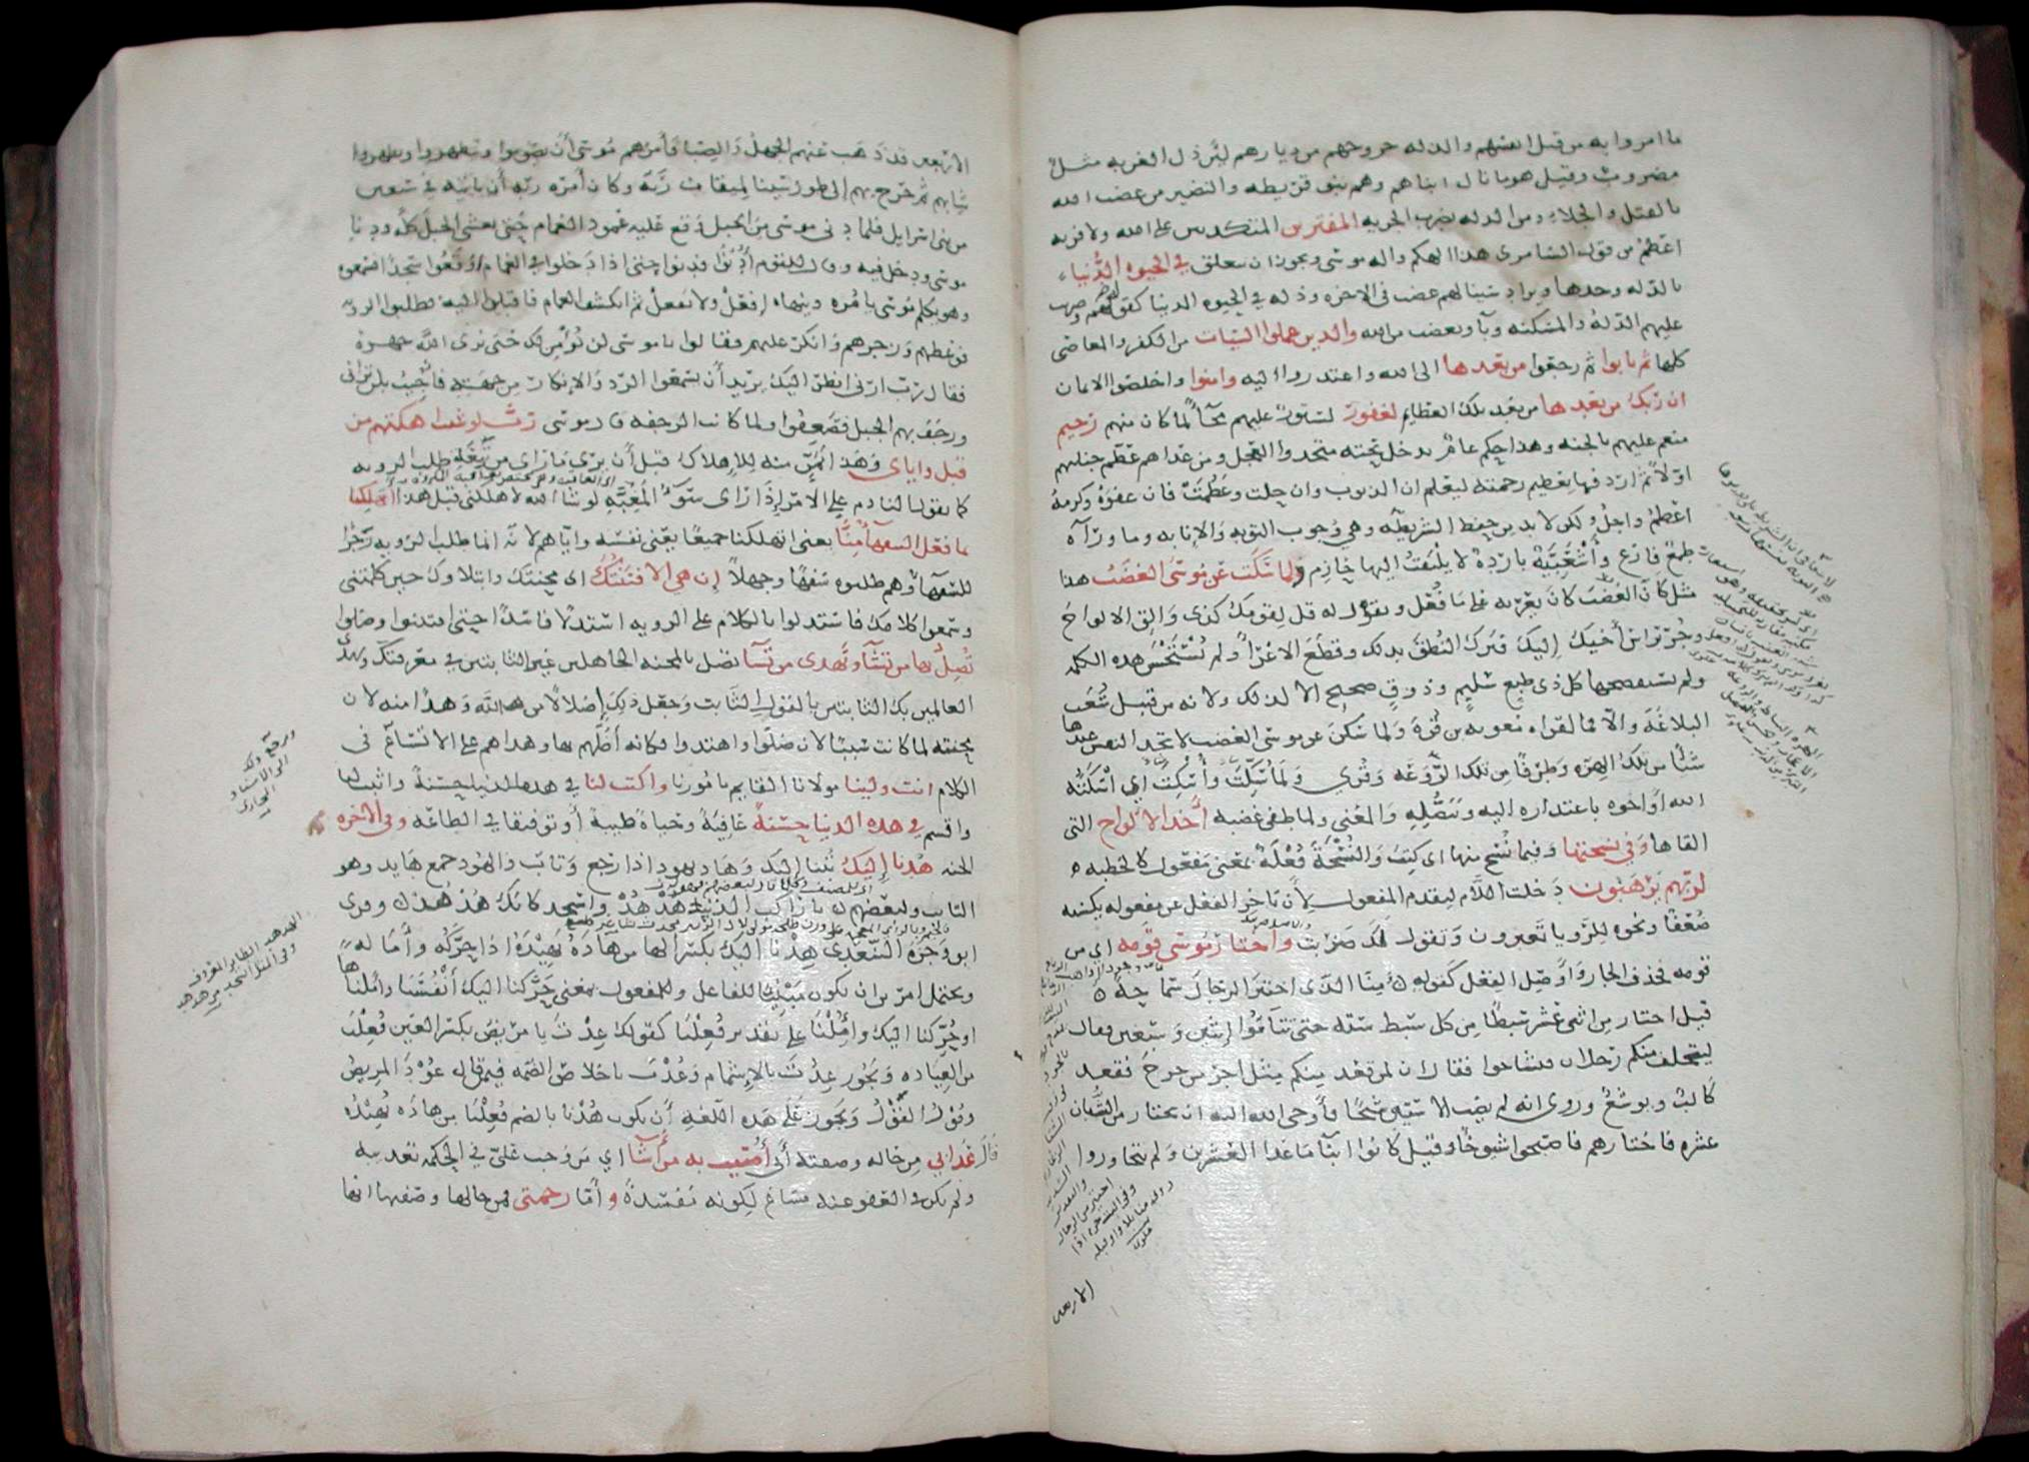 ما امروا به من قتل انفسهم والذله خروجهم من ديارهم لان ذل الغربه مثل
مضروب وقيل هو ما نال ابناهم وهم بنو قريظه والنضير من غضب الله
بالقتل والجلاء ومن الذله بضرب الجزيه المفترين المتكذبين على الله ولا فريه
اعظم من قول السامرى هذا الهكم واله موسى ويجوز ان يتعلق في الحيوه الدنيا
بالذله وحدها ويراد سينالهم غضب فى الاخره وذله في الحيوه الدنيا كقوله وضربت
عليهم الذلة والمسكنه وباو بغضب من الله والذين عملوا السيئات من الكفر والمعاصى
كلها ثم تابوا ثم رجعوا من بعدها الى الله واعتذروا اليه وامنوا واخلصوا الايمان
ان ربك من بعدها من بعد تلك العظايم لغفور لستور عليهم محآء لما كان منهم رحيم
منعم عليهم بالجنه وهذا حكم عام يدخل تحته متخذوا العجل ومن عداهم عظم جنايتهم
اولا ثم اردفها بعظيم رحمته ليعلم ان الذنوب وان جلت وعظمت فان عفوه وكرمه
اعظم واجل ولكن لا بد من حفظ الشريطه وهي وجوب التوبه والانابه وما ورآه
طمع فارغ وأشعبيه بارده لا يلتفت اليها حازم ولما سكت عن موسى الغضب هذا
مثل كان الغضب كان يغريه على ما فعل ويقول له قل لقومك كذى والق الالواح
وجر برأس أخيك إليك فترك النطق بذلك وقطع الاغراء ولم يستحسن هذه الكلمه
ولم يستفصحها كل ذى طبع سليم وذوق صحيح الا لذلك ولانه من قبيل شعب
البلاغة والا فما لقراءه معويه بن قره ولما سكن عن موسى الغضب لا تجد النفس عندها
شيئا من تلك الهزه وطرفا من تلك الروعه وقرى ولما سكت وأسكت اي اسكته
الله او اخوه باعتذاره اليه وتنصله والمعنى ولما طفى غضبه أخذ الالواح التى
القاها وفي نسختها وفيما نسخ منها اى كتب والنسخة فعلة بمعنى مفعول كالخطبه
لربهم يرهبون دخلت اللام لتقدم المفعول لان تاخر الفعل عن مفعوله يكسبه
ضعفا ونحوه للرويا تعبرون وتقول لك ضربت واختار موسى قومه اي من
قومه فحذف الجار واوصل الفعل كقوله منا الذى اختير الرجال سماحة
قيل اختار من اثنى عشر سبطا من كل سبط سته حتى تتاموا اثنين وسبعين فقال
ليتخلف منكم رجلان فتشاحوا فقال ان لمن قعد منكم مثل اجر من خرج فقعد
كالب ويوشع وروى انه لم يصب الا ستين شيخا فأوحى الله اليه ان يختار من الشبان
عشره فاختارهم فاصبحوا شيوخا وقيل كانوا ابنآء ما عدا العشرين ولم يتجاوزوا
الاربعين
الأربعين قد ذهب عنهم الجهل والصبا فأمرهم موسى أن يصوموا ويتطهروا ويطهروا
ثيابهم ثم خرج بهم الى طور سينا لميقات ربه وكان أمره ربه أن ياتيه في سبعين
من بنى اسرايل فلما دنى موسى من الجبل وقع عليه عمود الغمام حتى تغشى الجبل كله ودنا
موسى ودخل فيه وقال للقوم أدنوا فدنوا حتى اذا دخلوا في الغمام وقعوا سجدا فسمعوه
وهو يكلم موسى يامره وينهاه إفعل ولا تفعل ثم انكشف الغمام فاقبلوا اليه فطلبوا الرويه
فوعظهم وزجرهم وانكر عليهم فقالوا يا موسى لن نؤمن لك حتى نرى الله جهرة
فقال رب ارنى انظر اليك يريد أن يسمعوا الرد والإنكار من جهته فأجيب بلن ترانى
ورجف بهم الجبل فصعقوا ولما كانت الرجفه قال موسى رب لو شيت اهلكتهم من
قبل واياى وهذا تمن منه للإهلاك قبل أن يرى ما راى من تبعة طلب الرويه
كما يقول النادم على الامر إذا راى سوء المغبه لو شا الله لاهلكنى قبل هذا أتهلكنا
بما فعل السفهآ منا يعنى اتهلكنا جميعا يعنى نفسه واياهم لانه انما طلب الرويه زجرا
للسفهآ وهم طلبوه سفها وجهلا إن هي الا فتنتك اى محنتك وابتلاوك حين كلمتنى
وسمعوا كلامك فاستدلوا بالكلام على الرويه استدلالا فاسدا حتى افتتنوا وضلوا
تضل بها من تشآ وتهدى من تشآ تضل بالمحنه الجاهلين غير الثابتين في معرفتك وتهدى
العالمين بك الثابتين بالقول الثابت وجعل ذلك إضلالا من الله وهدا منه لان
محنته لما كانت سببا لان ضلوا واهتدوا فكانه أضلهم بها وهداهم على الاتساع فى
الكلام انت ولينا مولانا القايم بامورنا واكتب لنا في هذه الدنيا حسنة واثبت لنا
واقسم في هذه الدنيا حسنة عافية وحياة طيبة أو توفيقا في الطاعه وفى الآخره
الجنه هدنا إليك تبنا إليك وهاد يهود اذا رجع وتاب والهود جمع هايد وهو
التايب ولبعضهم يا راكب الذنب هد هد واسجد كانك هد هد وقرى
ابو وجزه السعدى هدنا اليك بكسر الها من هاده يهيده اذا حركه وأماله
ويحتمل امرين ان يكون مبنيا للفاعل وللمفعول بمعنى حركنا اليك أنفسنا واملناها
او حركنا اليك واملنا على تقدير فعلنا كقولك عدت يا مريض بكسر العين فعلت
من العياده ويجوز عدت بالإشمام وعدت باخلاص الضمه فيمن قال عود المريض
وقول القول ويجوز على هذه اللغه أن يكون هدنا بالضم فعلنا من هاده يهيده
قال عذابي من حاله وصفته أنى أصيب به من أشا اي من وجب علي في الحكمه تعذيبه
ولم يكن في العفو عنه مساغ لكونه مفسدة وأما رحمتى فمن حالها وصفتها انها